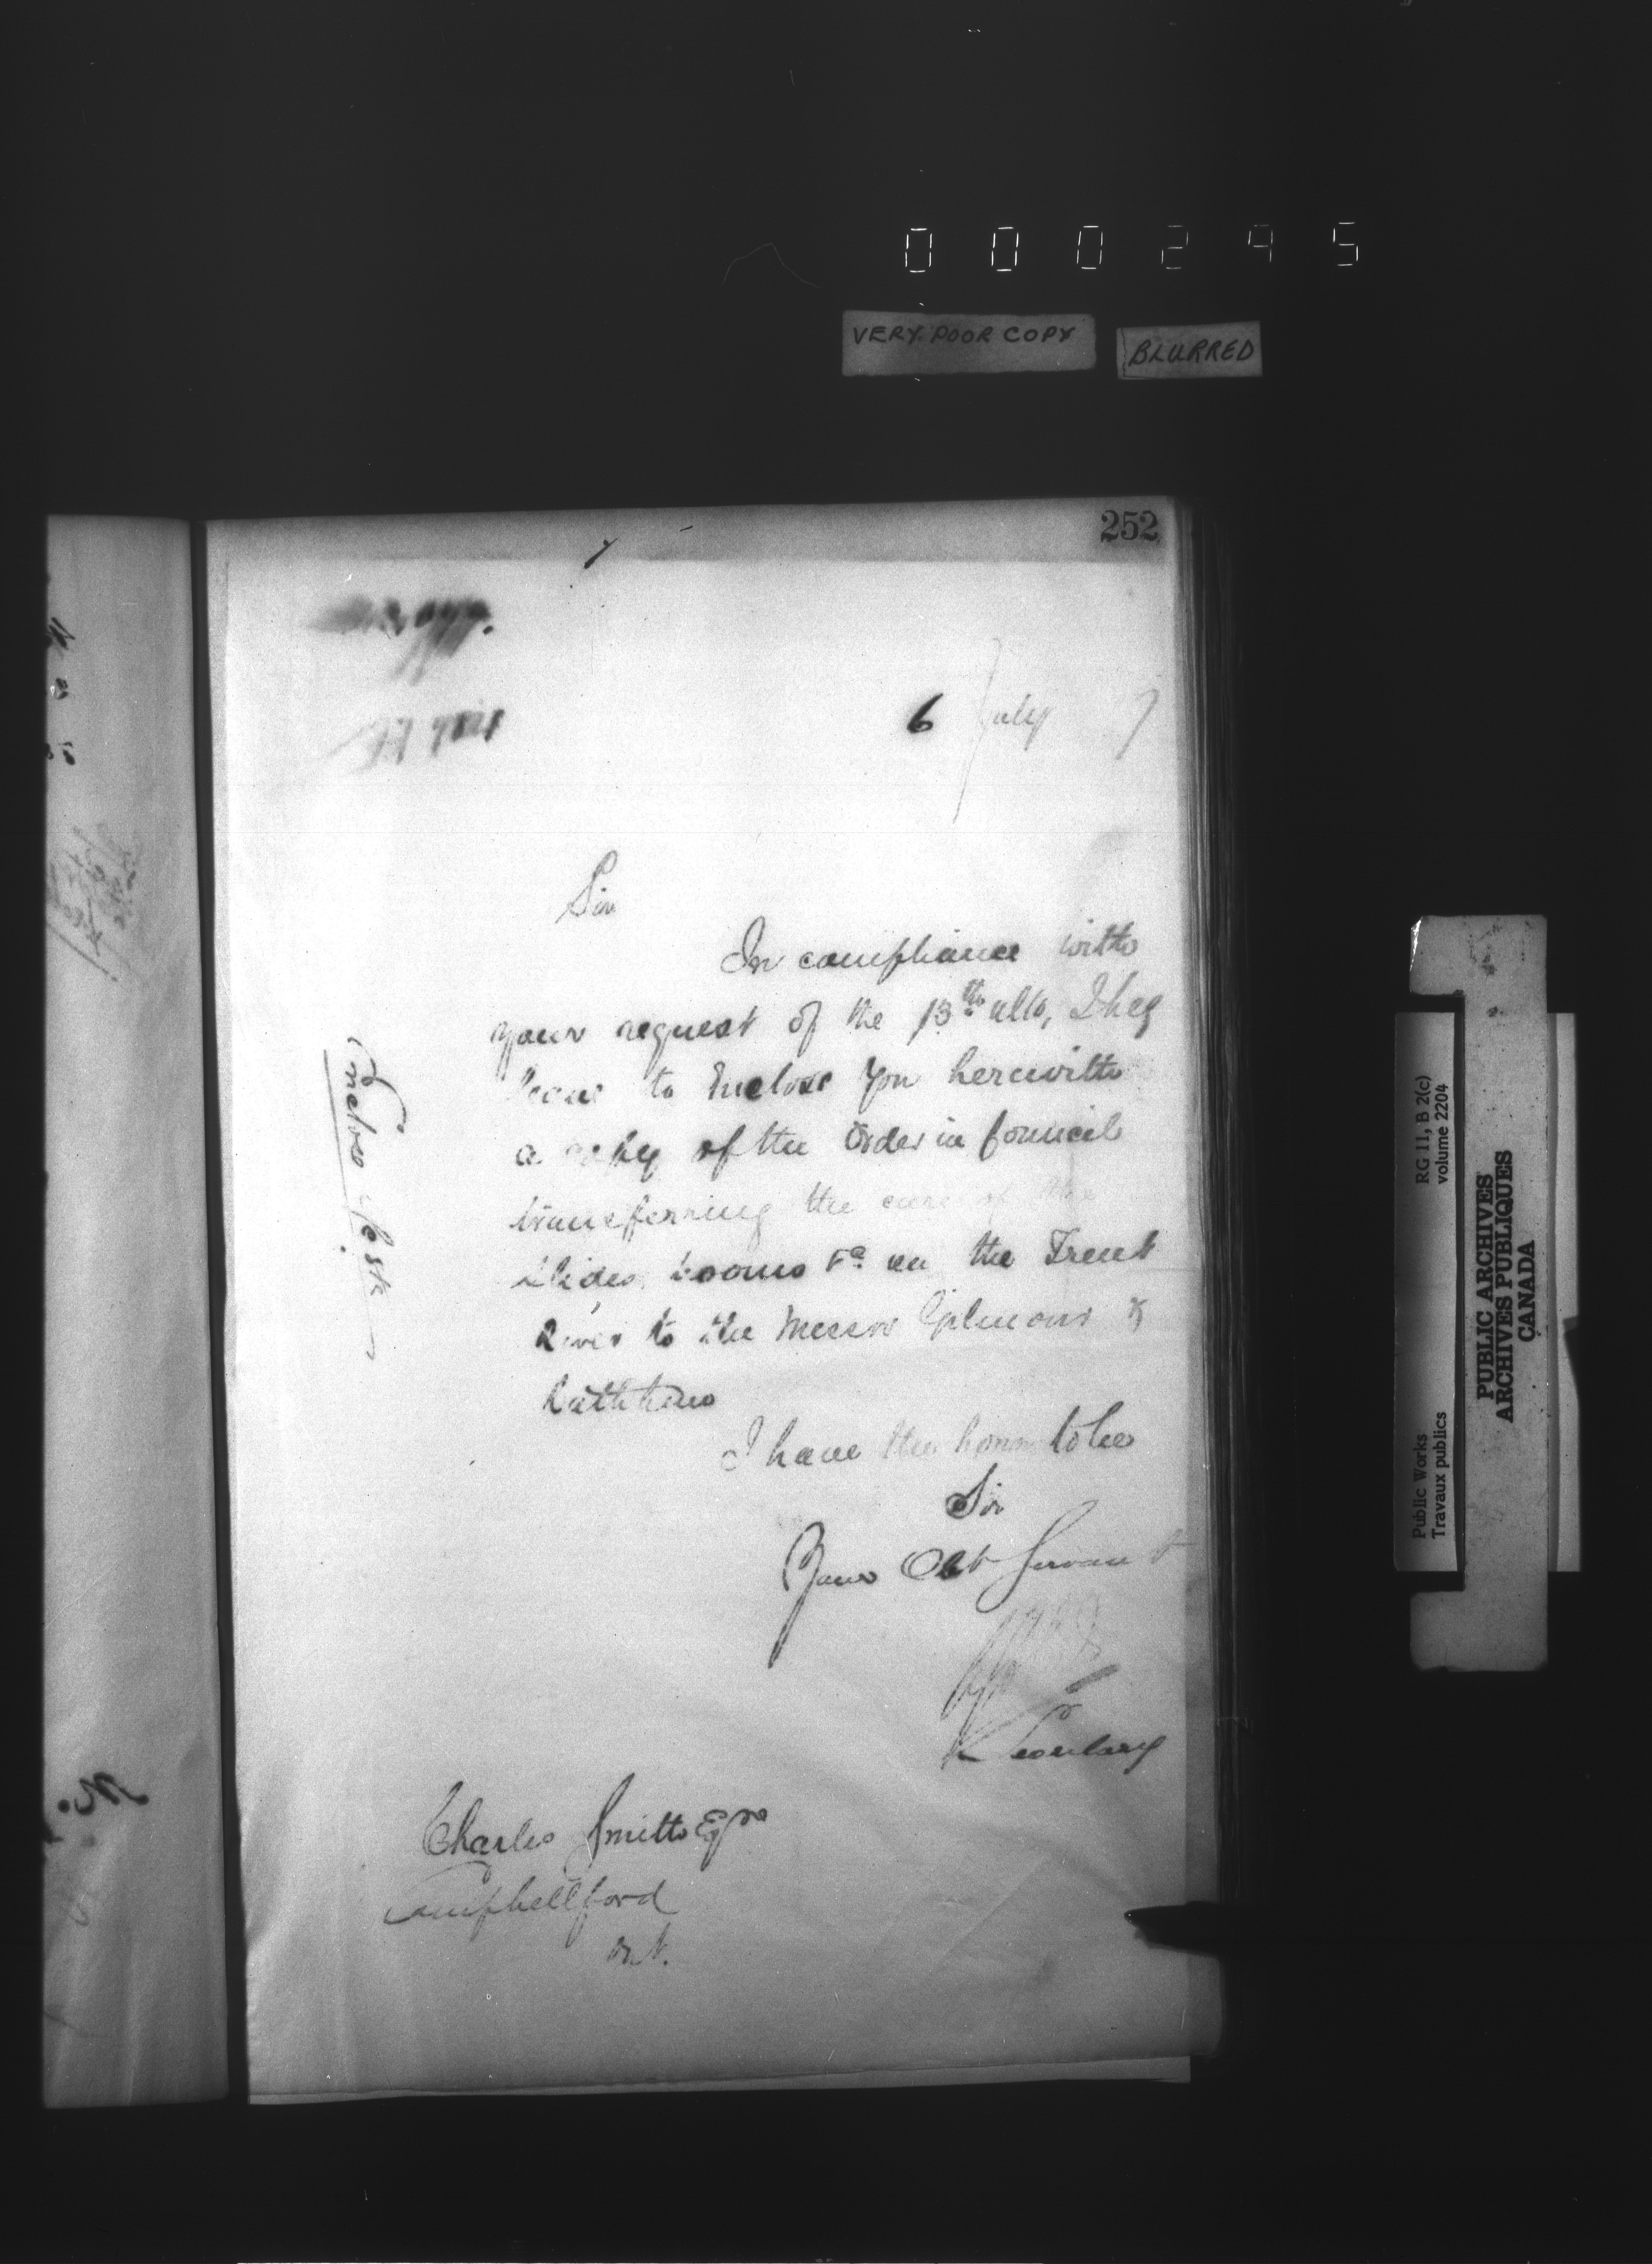 000245
VERY POOR COPY
BLURRED
252
6 July 7
Sir
In compliance with
your request of the 13th ulto, I beg
leave to Enclose you herewith
a copy of the Order in Council
transferring the care of the
Slides, booms &c on the Trent
River to the Messrs Gilmour &
Rathbun
I have the honor to be
Sir
Your Obt Servant
Secretary
Charles Smith Eqre
Campbellford
Ont.
Public Works
Travaux publics
RG 11, B 2(c)
volume 2204
PUBLIC ARCHIVES
ARCHIVES PUBLIQUES
CANADA